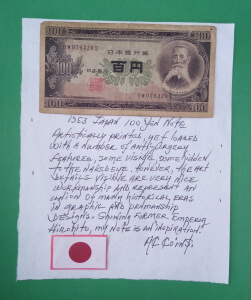 100
100
DW076326S
日本銀行券
百円
100
100
1953 JAPAN 100 YEN NOTE
ARTISTICALLY PRINTED, YET LOADED
WITH A NUMBER OF ANTI-FORGERY
FEATURES, SOME VISIBLE, SOME HIDDEN
TO THE NAKED EYE. HOWEVER, THE ART
DETAILS VISIBLE ARE VERY NICE
WORKMANSHIP AND REPRESENT AN
UNION OF MANY HISTORICAL ERAS
IN GRAPHIC AND PENMANSHIP
DESIGNS. SHOWING FORMER EMPEROR
HIROHITO, MY NOTE IS AN INSPIRATION!